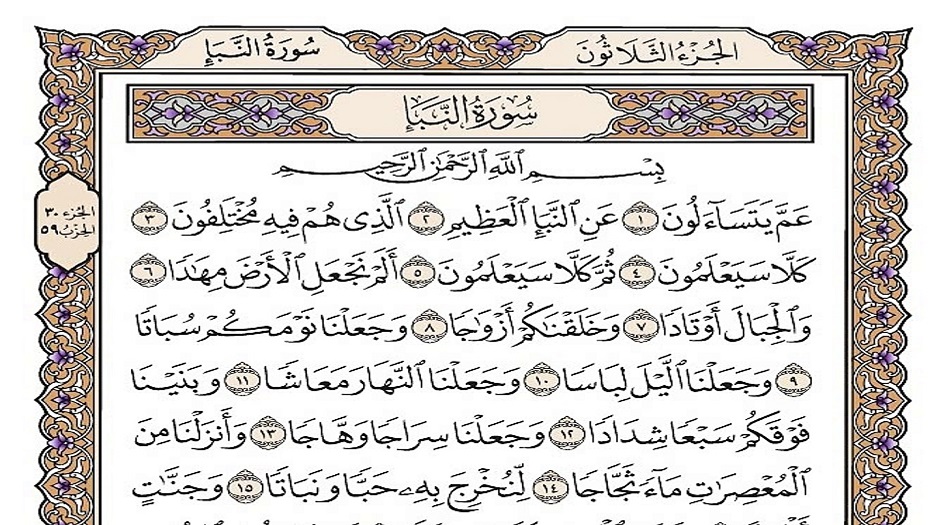 الجُزْءُ الثَّلَاثُونَ
سُورَةُ النَّبَإِ
سُورَةُ النَّبَإِ
بِسْمِ ٱللَّهِ ٱلرَّحْمَٰنِ ٱلرَّحِيمِ
الجزء ٣٠
الحزب ٥٩
عَمَّ يَتَسَآءَلُونَ ١ عَنِ ٱلنَّبَإِ ٱلْعَظِيمِ ٢ ٱلَّذِى هُمْ فِيهِ مُخْتَلِفُونَ ٣
كَلَّا سَيَعْلَمُونَ ٤ ثُمَّ كَلَّا سَيَعْلَمُونَ ٥ أَلَمْ نَجْعَلِ ٱلْأَرْضَ مِهَٰدًا ٦
وَٱلْجِبَالَ أَوْتَادًا ٧ وَخَلَقْنَٰكُمْ أَزْوَٰجًا ٨ وَجَعَلْنَا نَوْمَكُمْ سُبَاتًا
٩ وَجَعَلْنَا ٱلَّيْلَ لِبَاسًا ١٠ وَجَعَلْنَا ٱلنَّهَارَ مَعَاشًا ١١ وَبَنَيْنَا
فَوْقَكُمْ سَبْعًا شِدَادًا ١٢ وَجَعَلْنَا سِرَاجًا وَهَّاجًا ١٣ وَأَنزَلْنَا مِنَ
ٱلْمُعْصِرَٰتِ مَآءً ثَجَّاجًا ١٤ لِّنُخْرِجَ بِهِۦ حَبًّا وَنَبَاتًا ١٥ وَجَنَّٰتٍ